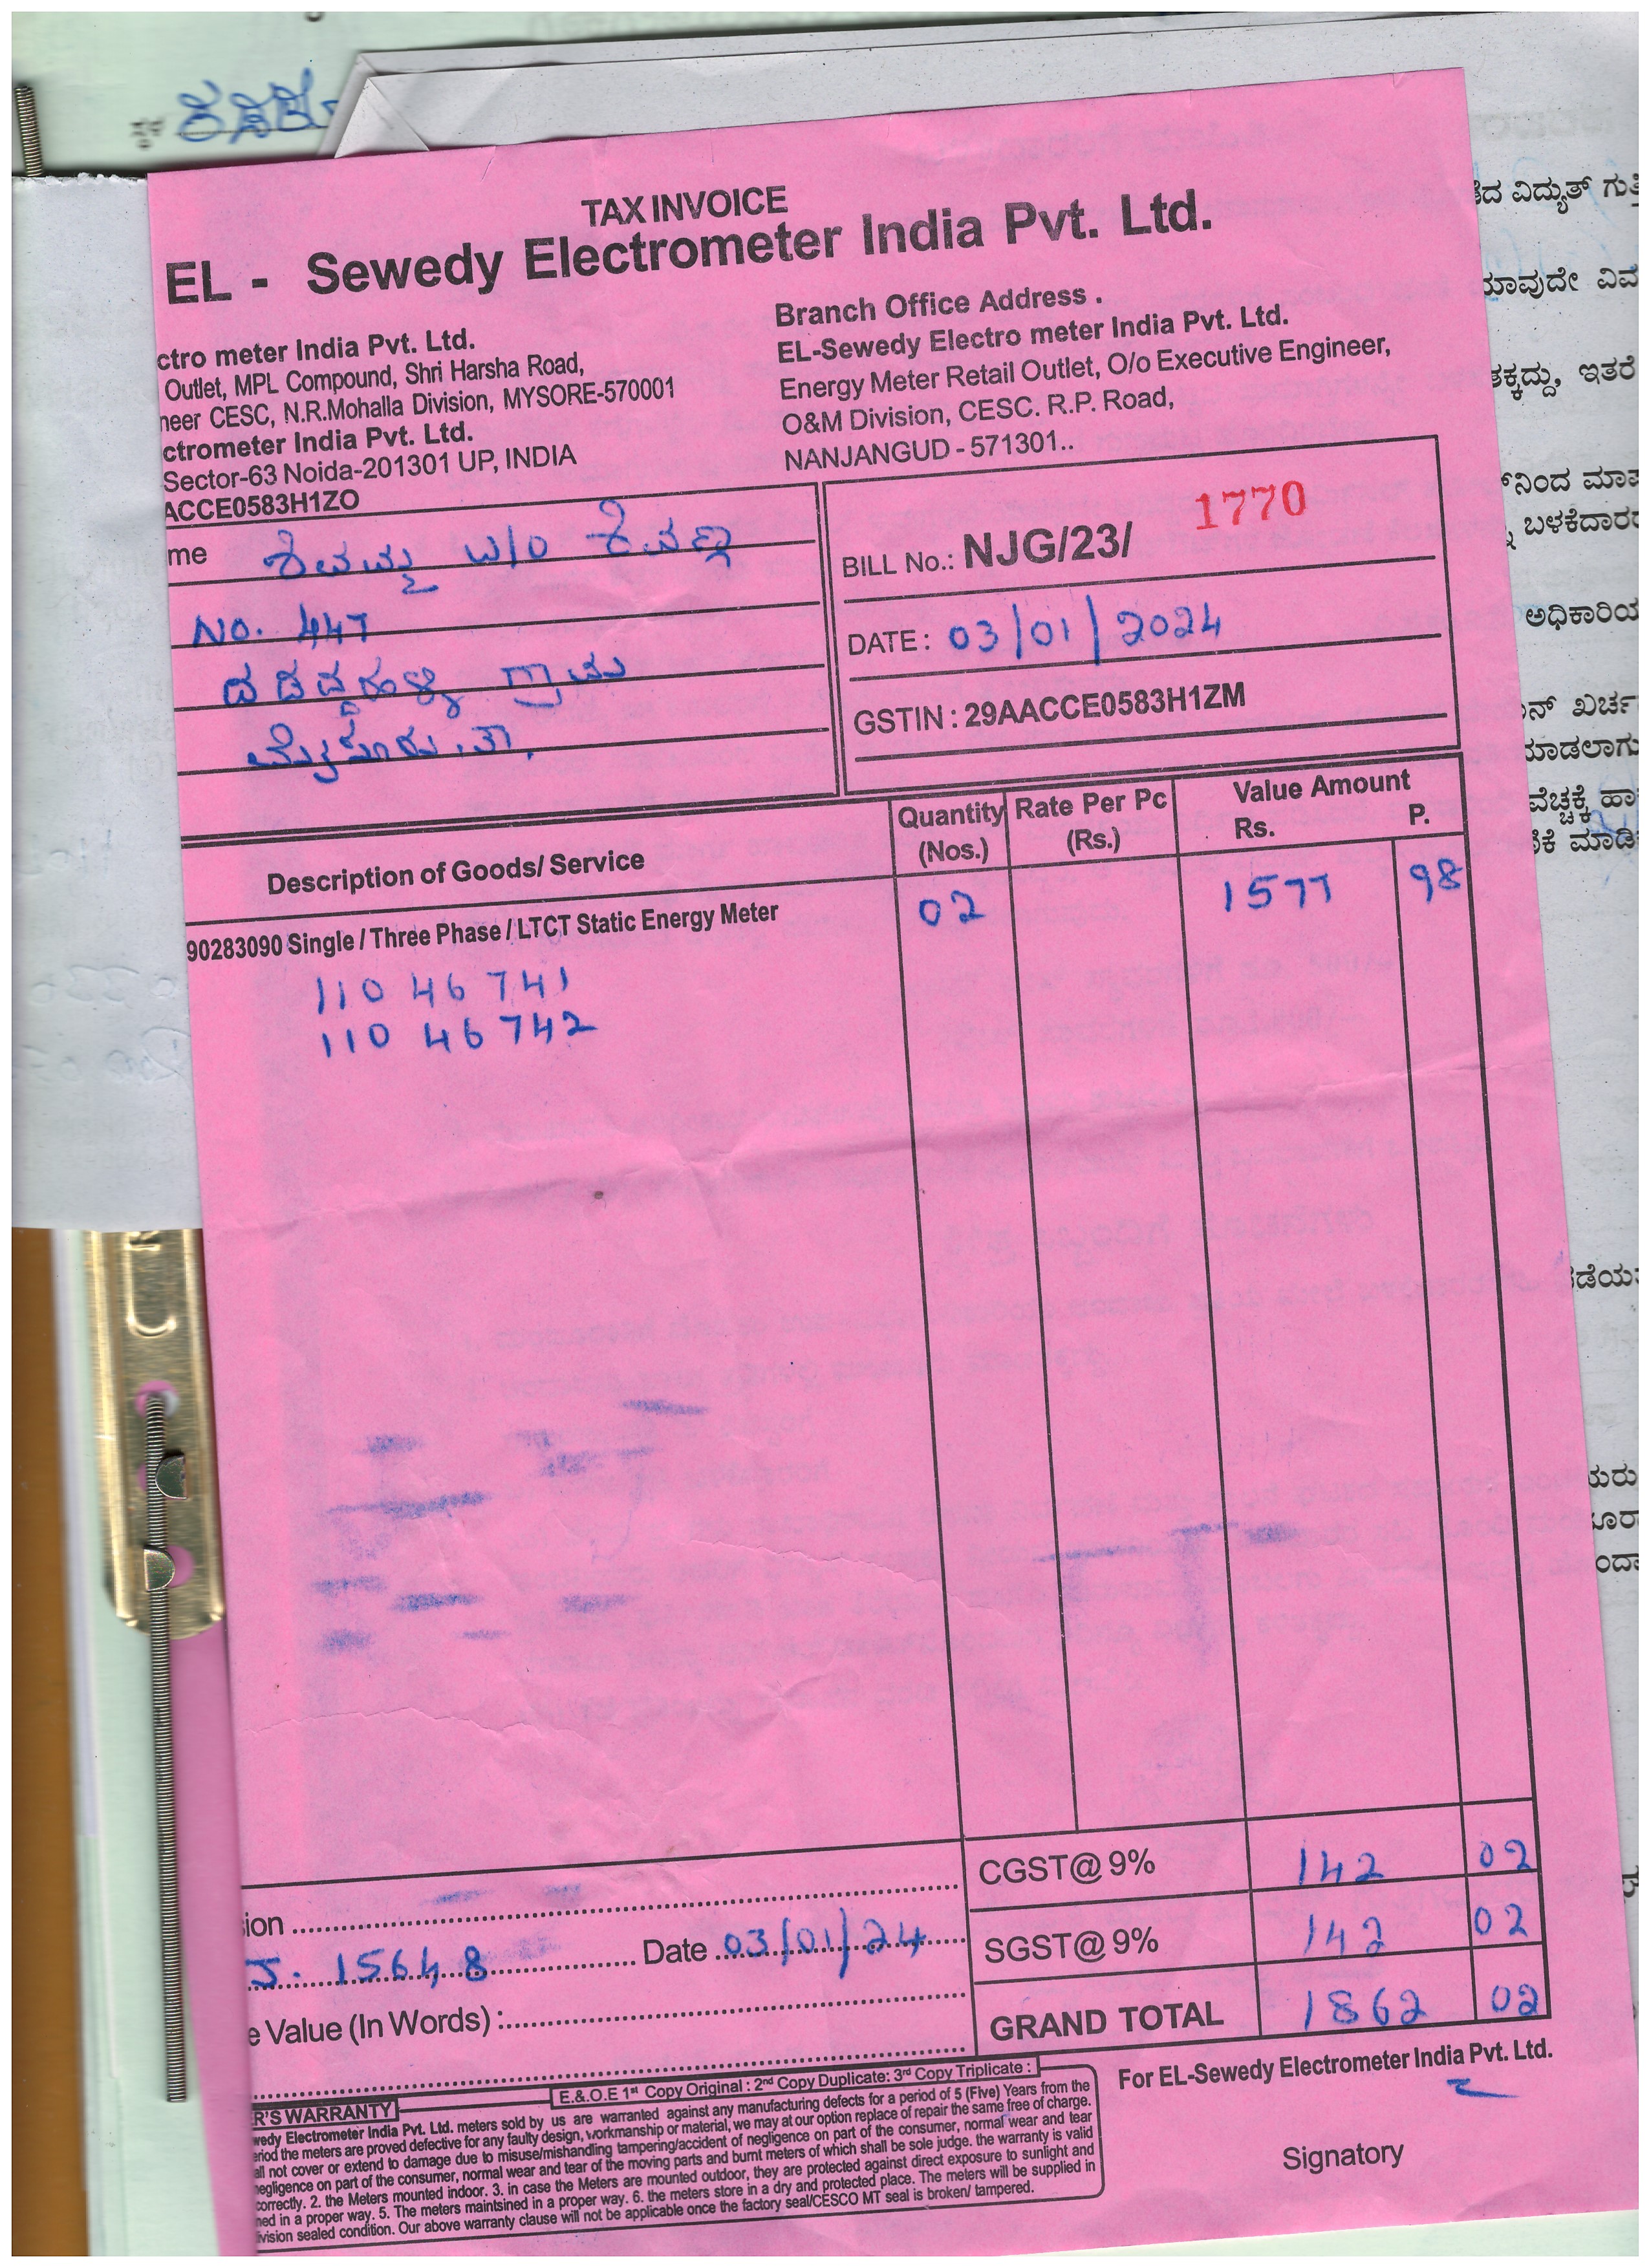 TAX INVOICE
EL - Sewedy Electrometer India Pvt. Ltd.
ctro meter India Pvt. Ltd.
Outlet, MPL Compound, Shri Harsha Road,
neer CESC, N.R.Mohalla Division, MYSORE-570001
ctrometer India Pvt. Ltd.
Sector-63 Noida-201301 UP, INDIA
ACCE0583H1ZO
Branch Office Address .
EL-Sewedy Electro meter India Pvt. Ltd.
Energy Meter Retail Outlet, O/o Executive Engineer,
O&M Division, CESC. R.P. Road,
NANJANGUD - 571301..
me ಶಿವಮ್ಮ W/O ಶಿವಣ್ಣ
No. 447
ದಡದಹಳ್ಳಿ ಗ್ರಾಮ
ಮೈಸೂರು ತಾ.
BILL No.: NJG/23/ 1770
DATE : 03/01/2024
GSTIN : 29AACCE0583H1ZM
Description of Goods/ Service Quantity (Nos.) Rate Per Pc (Rs.) Value Amount Rs. P.
90283090 Single / Three Phase / LTCT Static Energy Meter 02 1577 98
110 46 741
110 46 742
CGST@ 9% 142 02
SGST@ 9% 142 02
GRAND TOTAL 1862 02
ion
J. 15648 Date 03/01/24
e Value (In Words) :
E.& O.E 1st Copy Original : 2nd Copy Duplicate: 3rd Copy Triplicate :
R'S WARRANTY
wedy Electrometer India Pvt. Ltd. meters sold by us are warranted against any manufacturing defects for a period of 5 (Five) Years from the
eriod the meters are proved defective for any faulty design, workmanship or material, we may at our option replace of repair the same free of charge.
all not cover or extend to damage due to misuse/mishandling tampering/accident of negligence on part of the consumer, normal wear and tear
egligence on part of the consumer, normal wear and tear of the moving parts and burnt meters of which shall be sole judge. the warranty is valid
correctly. 2. the Meters mounted indoor. 3. in case the Meters are mounted outdoor, they are protected against direct exposure to sunlight and
ned in a proper way. 5. The meters maintsined in a proper way. 6. the meters store in a dry and protected place. The meters will be supplied in
ivision sealed condition. Our above warranty clause will not be applicable once the factory seal/CESCO MT seal is broken/ tampered.
For EL-Sewedy Electrometer India Pvt. Ltd.
Signatory
ಡೆದ ವಿದ್ಯುತ್ ಗುತ್ತಿ
ಯಾವುದೇ ವಿವ
ತಕ್ಕದ್ದು, ಇತರೆ
ನಿಂದ ಮಾಪ
ಬಳಕೆದಾರರ
ಅಧಿಕಾರಿಯ
ನ್ ಖರ್ಚ
ಮಾಡಲಾಗು
ವೆಚ್ಚಕ್ಕೆ ಹಾ
ಕೆ ಮಾಡಿ